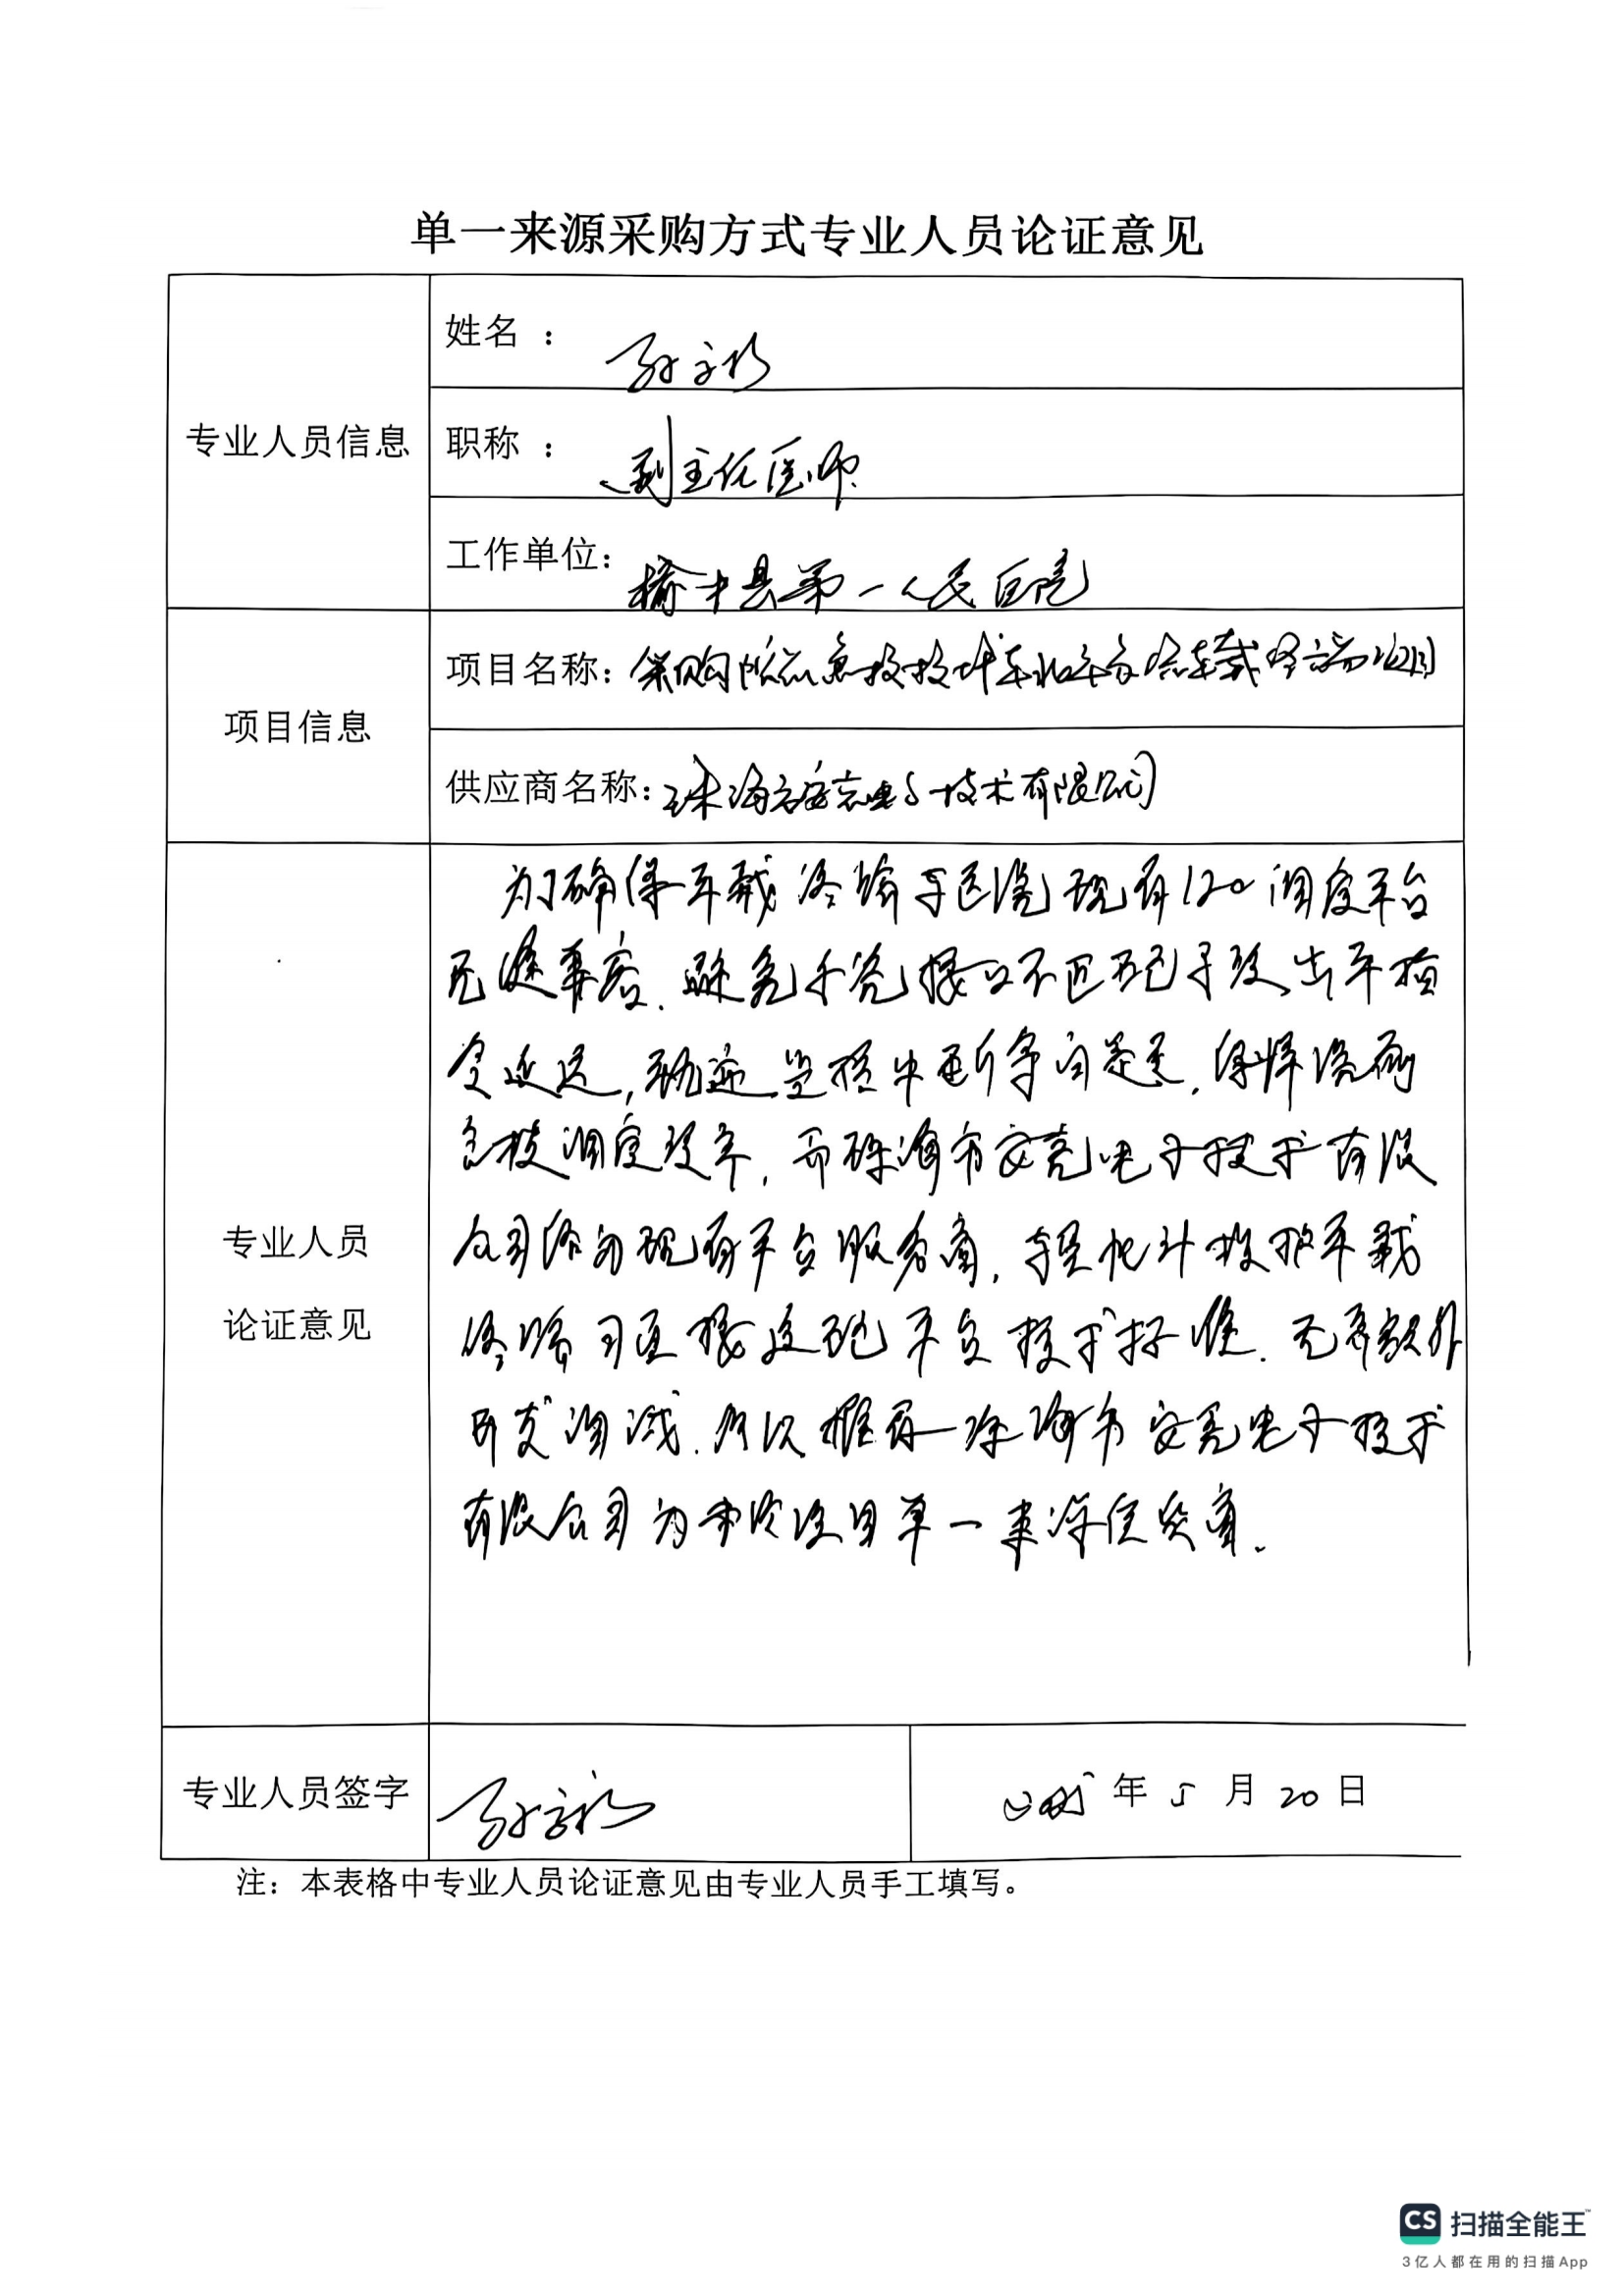 单一来源采购方式专业人员论证意见
专业人员信息
姓名：
职称：副主任医师
工作单位：榆中县第一人民医院
项目信息
项目名称：采购院前急救指挥车和车台车载终端项目
供应商名称：珠海市安克电子技术有限公司
专业人员
论证意见
为确保车载终端与医院现有120调度平台
无缝兼容，避免系统接口不匹配导致出车指
令延迟，轨迹监控中断等问题，保障院前
急救调度效率，而珠海市安克电子技术有限
公司作为现有平台服务商，提供计
终端可直接适配平台技术标准，无需额外
开发调试，所以推荐珠海市安克电子技术
有限公司为本次项目单一来源供货商。
专业人员签字
年 5 月 20 日
注：本表格中专业人员论证意见由专业人员手工填写。
CS 扫描全能王
3亿人都在用的扫描App